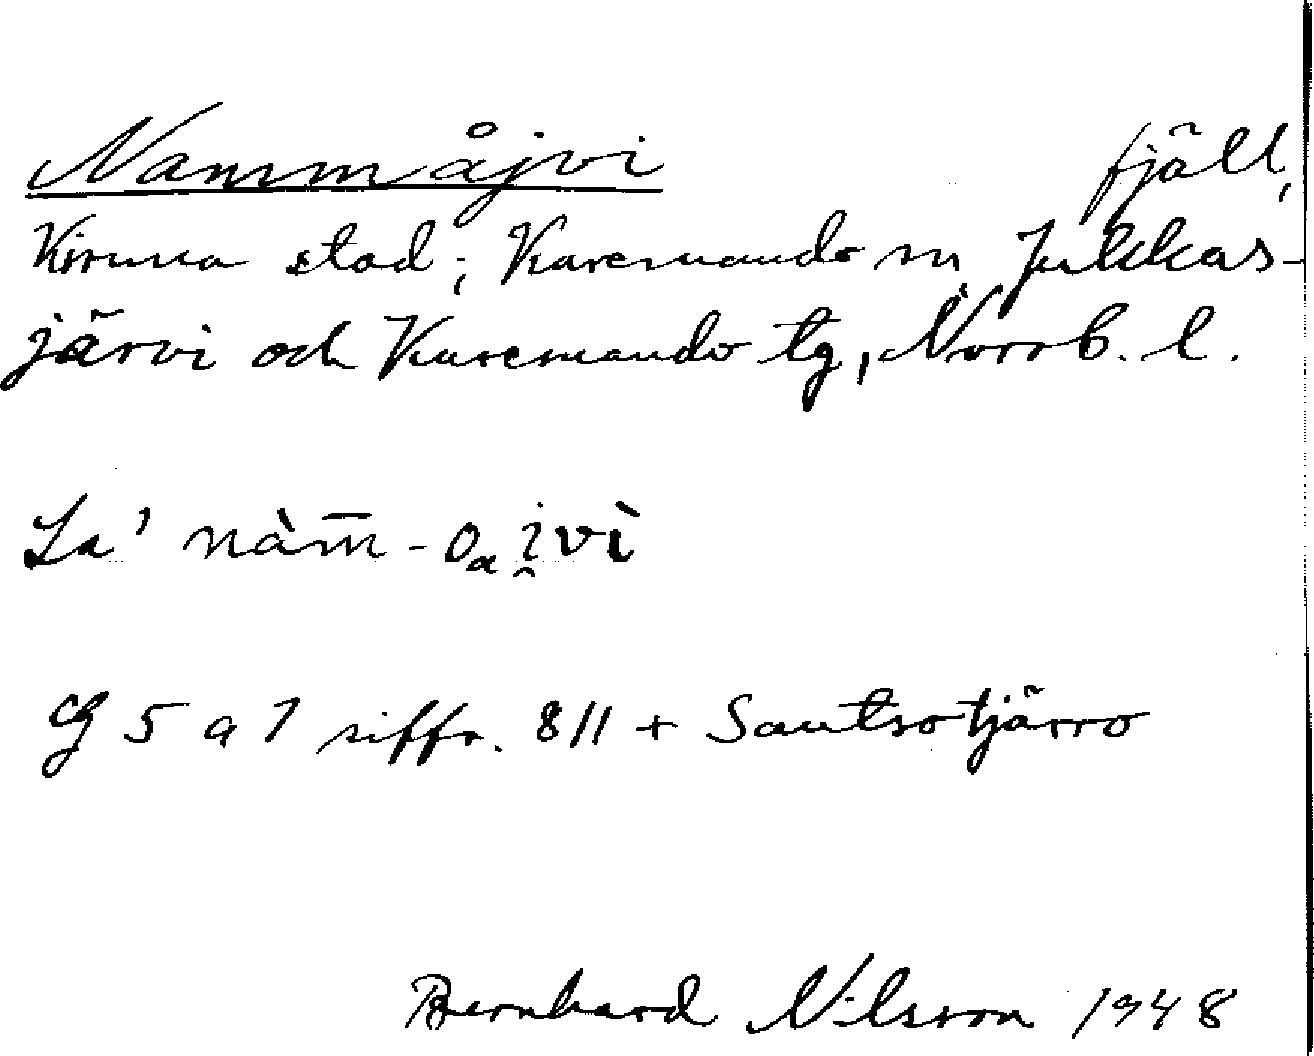 Nammåjvi fjäll,
Kiruna stad; Karesuando m, Jukkas-
järvi och Karesuando tg, Norrb. l.
La' nàm̅-oₐi̯vì
Cg 5 a 7 siffr. 811 + Sautsotjårro
Bernhard Nilsson 1948